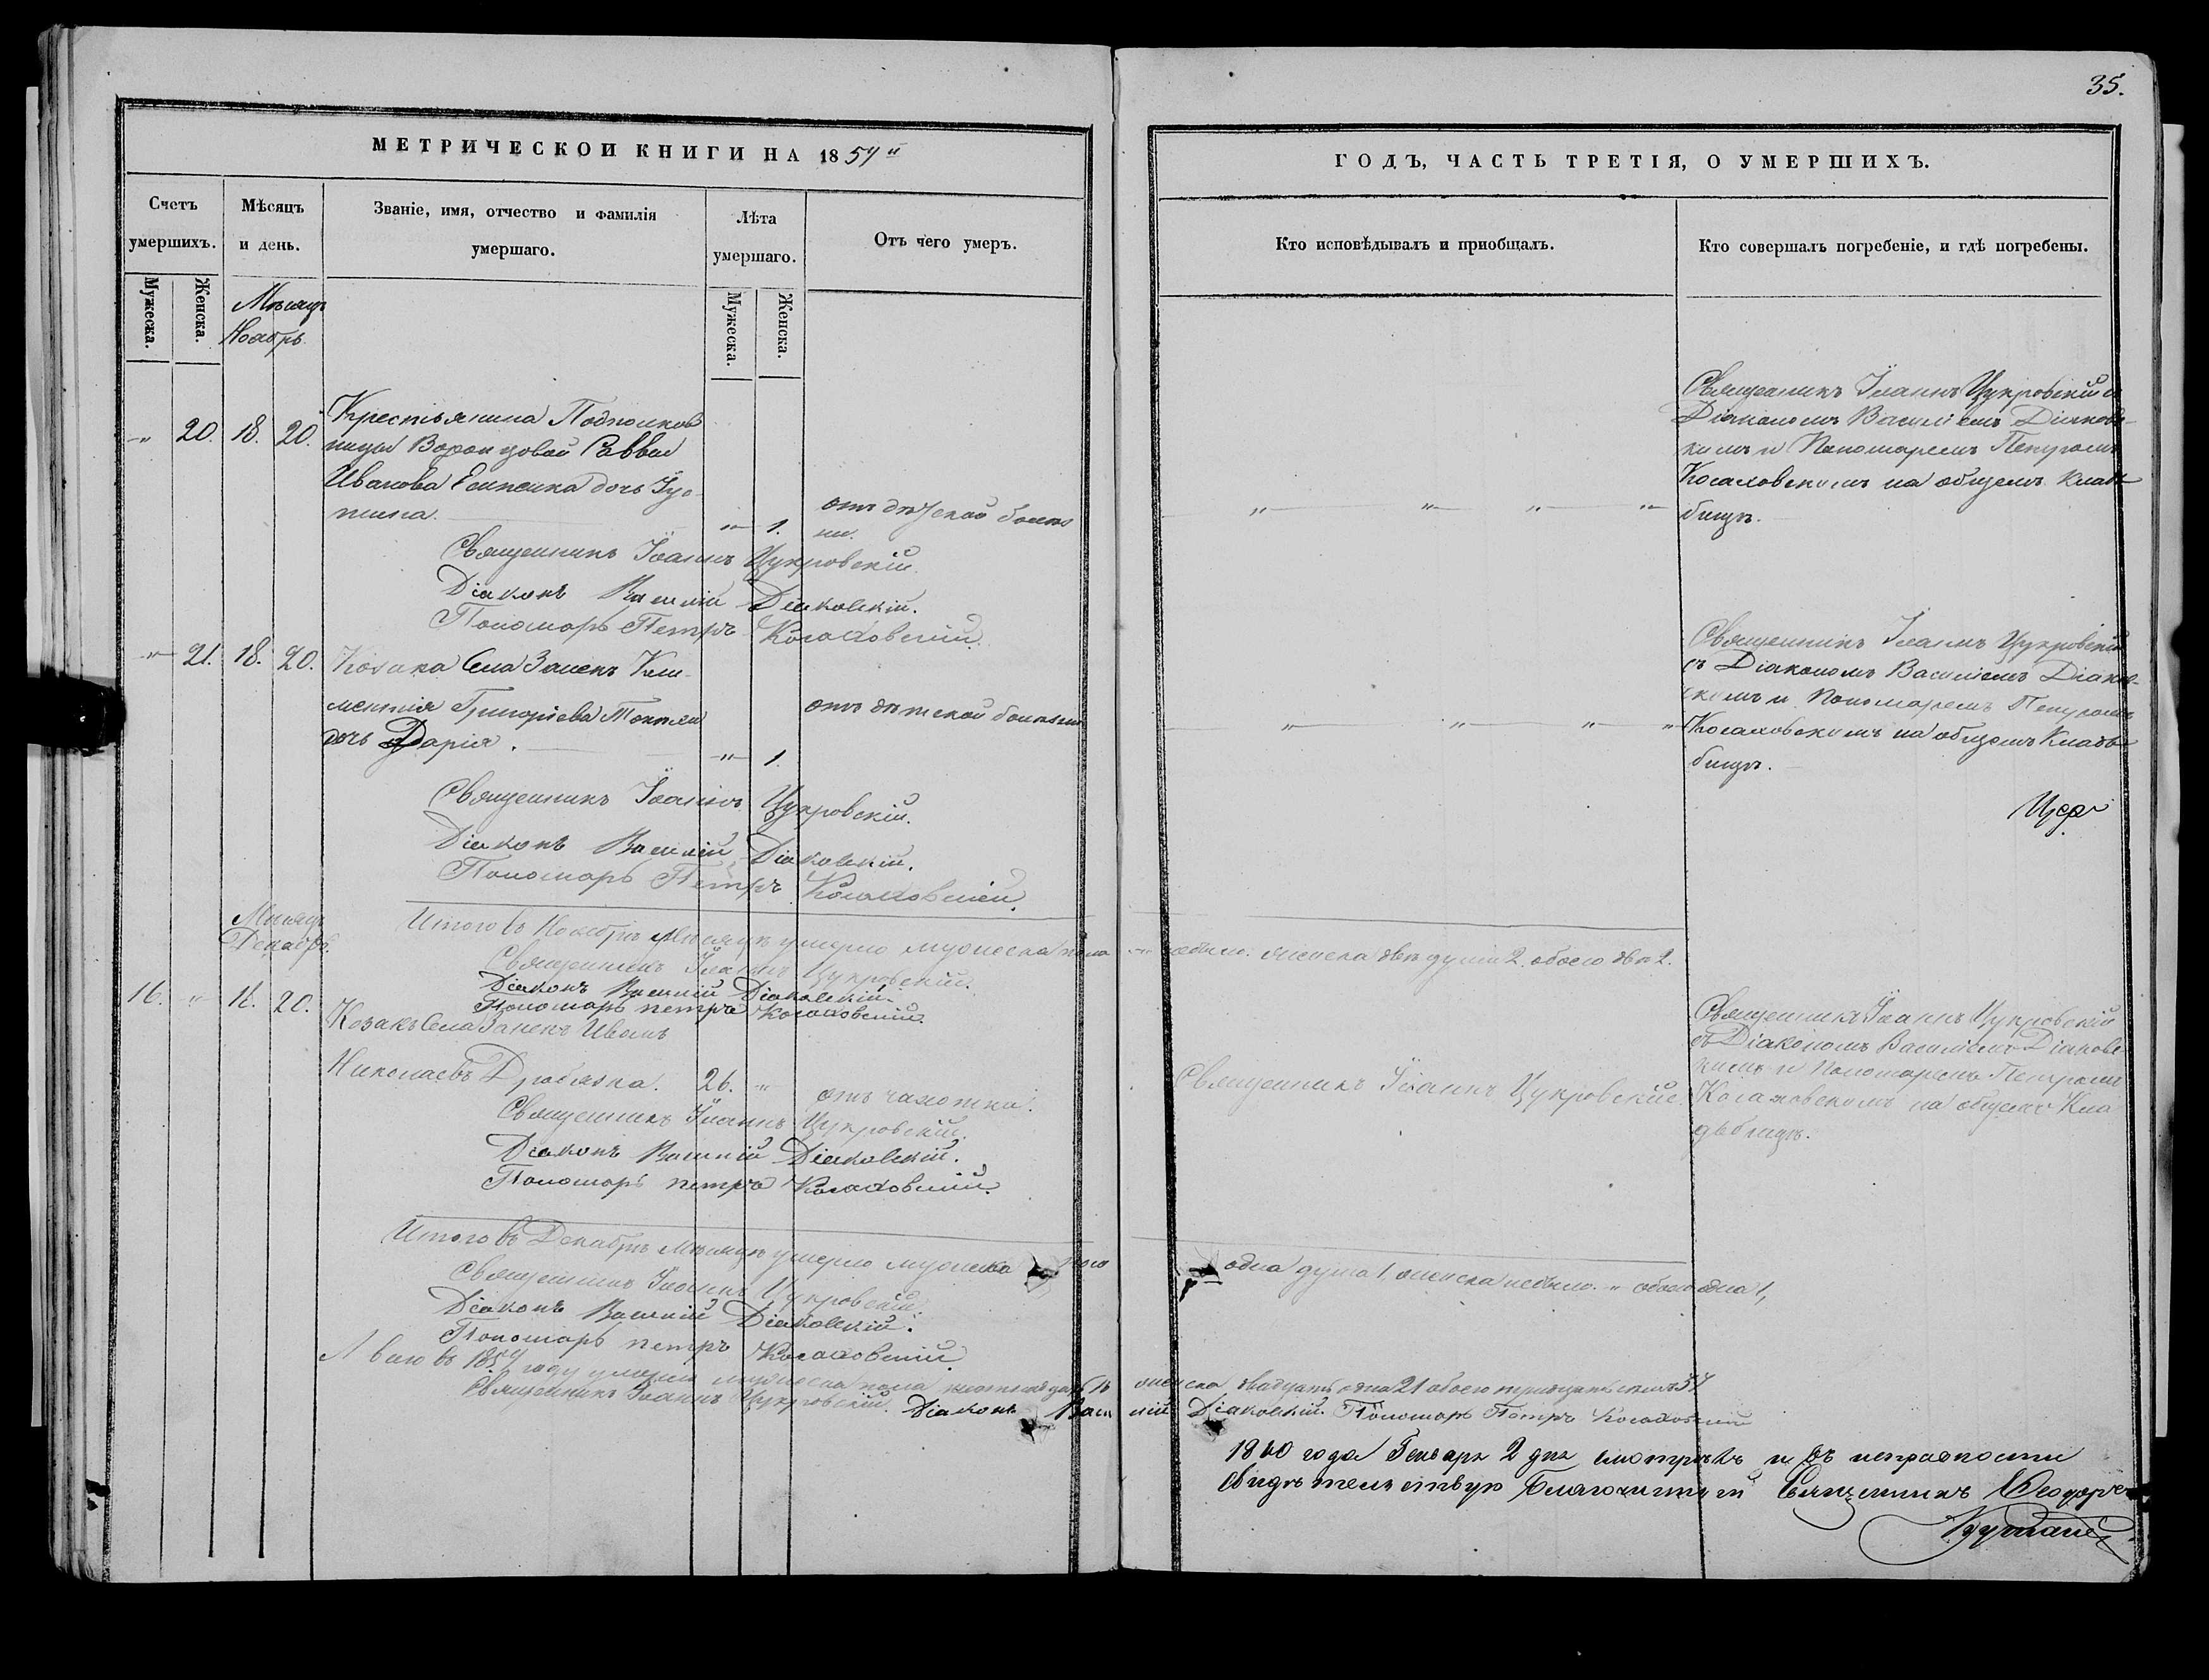 35.
МЕТРИЧЕСКОЙ КНИГИ НА 1859 й
ГОДЪ, ЧАСТЬ ТРЕТІЯ, О УМЕРШИХЪ.
Счетъ умершихъ.
Мѣсяцъ и день.
Званіе, имя, отчество и фамилія умершаго.
Лѣта умершаго.
Отъ чего умеръ.
Кто исповѣдывалъ и пріобщалъ.
Кто совершалъ погребеніе, и гдѣ погребены.
Мужеска.
Женска.
Мужеска.
Женска.
Мѣсяцъ
Ноябрь
„ 20. 18. 20.
Крестьянина Подполков
ницы Воронцовой Саввы
Иванова дочь Іус-
тина. „ 1.
отъ дѣтской болѣз
ни.
„ „ „ „
Священникъ Іоаннъ Цукровскій съ
Діакономъ Василіемъ Діаковс-
кимъ и Пономаремъ Петромъ
Косаховскимъ на общемъ клад-
бищѣ.
Священникъ Іоаннъ Цукровскій.
Діаконъ Василій Діаковскій.
Пономарь Петръ Косаховскій.
„ 21. 18. 20.
Козака Села Занекъ Кли-
ментія Григоріева
дочь Дарія. „ 1.
отъ дѣтской болѣзни
„ „ „ „
Священникъ Іоаннъ Цукровскій
съ Діакономъ Василіемъ Діаков-
скимъ и Пономаремъ Петромъ
Косаховскимъ на общемъ Кладъ-
бищѣ.
Священникъ Іоаннъ Цукровскій.
Діаконъ Василій Діаковскій.
Пономарь Петръ Косаховскій.
Итого въ Ноябрѣ Мѣсяцѣ умерло мужеска пола „ небыло. женска двѣ души 2. обоего двѣ 2.
Священникъ Іоаннъ Цукровскій.
Діаконъ Василій Діаковскій.
Пономарь петръ Косаховскій.
Мѣсяцъ
Декабрь.
16. „ 18. 20.
Козакъ Села Занекъ Иванъ
Николаевъ Дробязка. 26. „
отъ чахотки.
Священникъ Іоаннъ Цукровскій.
Священникъ Іоаннъ Цукровскій
съ Діакономъ Василіемъ Діаковс
кимъ и Пономаремъ Петромъ
Косаховскимъ на общемъ Кла
дьбищѣ.
Священникъ Іоаннъ Цукровскій.
Діаконъ Василій Діаковскій.
Пономарь петръ Косаховскій.
Итого въ Декабрѣ Мѣсяцѣ умерло мужеска пола одна душа 1, женска небыло. „ обоего одна 1,
Священникъ Іоаннъ Цукровскій.
Діаконъ Василій Діаковскій.
Пономарь петръ Косаховскій.
А всего въ 1859 году умерло мужеска пола шестнадцать 16 женска двадцать одна 21 обоего тридцать семь 37
Священникъ Іоаннъ Цукровскій. Діаконъ Василій Діаковскій. Пономарь Петръ Косаховскій
1860 года Генваря 2 дня смотрѣлъ и въ исправности
свидѣтельствую Благочинный Священникъ Ѳеодоръ